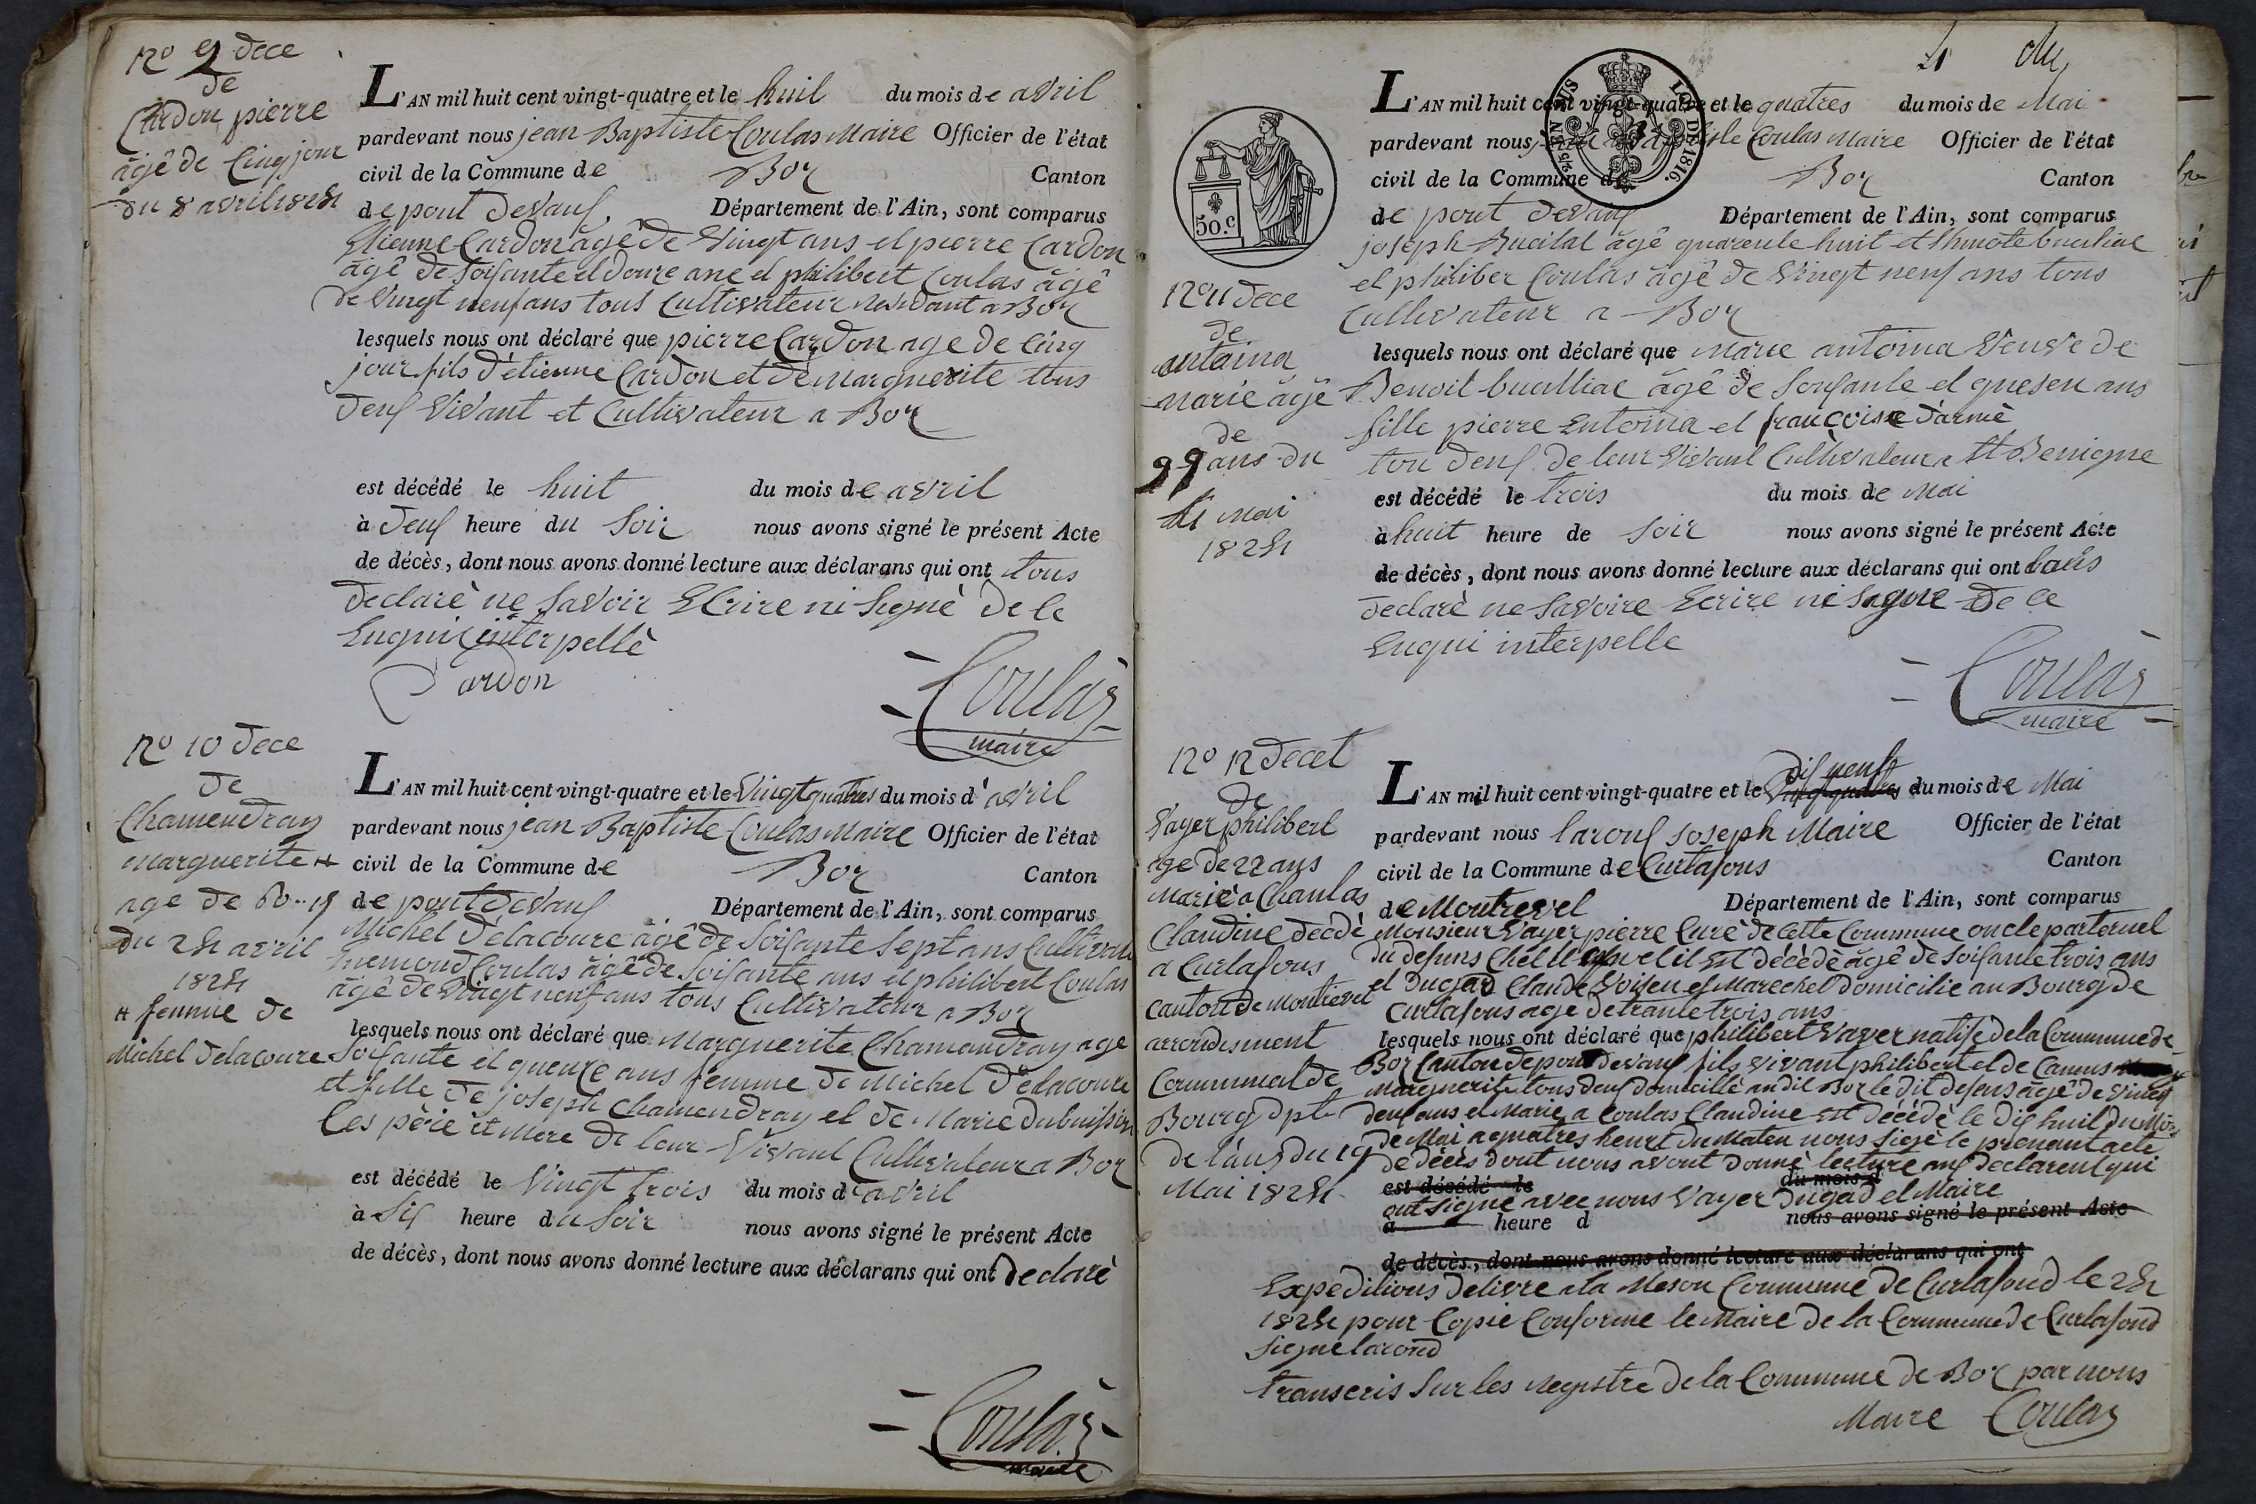 N.o 9 dece
de
Cardon pierre
âgê de Cinq jour
du 8 avril 1824
L'AN mil huit cent vingt-quatre et le huit du mois de avril
pardevant nous jean Baptiste Coulas Maire Officier de l'état
civil de la Commune de Boz Canton
de pont devaux Département de l'Ain, sont comparus
Etienne Cardon âgê de Vingt ans et pierre Cardon
âgê de soisante et douze ans et philibert Coulas âgê
de Vingt neuf ans tous Cultivateur residant a Boz
lesquels nous ont déclaré que pierre Cardon age de Cinq
jour fils d'étienne Cardon et de Marguerite tous
deux Vivant et Cultivateur a Boz
est décédé le huit du mois de avril
à deux heure du Soir nous avons signé le présent Acte
de décès, dont nous avons donné lecture aux déclarans qui ont tous
declarè ne savoir Ecrire ni signè de ce
Enqui interpellè
Cardon
Coulas
maire
N.o 10 dece
de
Chamendray
Marguerite #
age de
du 24 avril
1824
# femme de
Michel delacoure
L'AN mil huit cent vingt-quatre et le Vingt quatres du mois d'avril
pardevant nous jean Baptiste Coulas Maire Officier de l'état
civil de la Commune de Boz Canton
de pont devaux Département de l'Ain, sont comparus
Michel Delacoure âgê de soisante sept ans Cultivateur
Coulas âgê de soisante ans et philibert Coulas
âgê de Vingt neuf ans tous Cultivateur a Boz
lesquels nous ont déclaré que Marguerite Chamandray age
soisante et quenze ans femme de Michel Delacoure
et fille de joseph Chamendray et de Marie dubuisson
Ces père et Mere de leur Vivant Cultivateur a Boz
est décédé le Vingt trois du mois d'avril
à Six heure du Soir nous avons signé le présent Acte
de décès, dont nous avons donné lecture aux déclarans qui ont declarè
Coulas
maire
4
50.c
LOI DE 1816.
N.o 11 dece
de
antoina
marie âgê
de
ans du
4 mai
1824
L'AN mil huit cent vingt-quatre et le quatres du mois de Mai
pardevant nous Coulas Maire Officier de l'état
civil de la Commune de Boz Canton
de pont devaux Département de l'Ain, sont comparus
joseph âgê quarente huit et
et philiber Coulas âgê de Vingt neuf ans tous
Cultivateur a Boz
lesquels nous ont déclaré que Marie antoina Veuve de
Benoit âgê de soisante et quesen ans
fille pierre Entoina et françoise
tou deux de leur Vivant Cultivateur a St Benigne
est décédé le trois du mois de Mai
à huit heure de Soir nous avons signé le présent Acte
de décès, dont nous avons donné lecture aux déclarans qui ont
declarè ne savoire Ecrire ni de ce
Enqui interpelle
Coulas
maire
N.o 12 decet
de
Vayer philibert
age de 22 ans
Marié a Coulas
Claudine decdè
a Curtafons
canton de Montrevel
arrondisment
Communal de
Bourg dpt
de l'ain du 19
Mai 1824
L'AN mil huit cent vingt-quatre et le dix neuf du mois de Mai
pardevant nous larouf joseph Maire Officier de l'état
civil de la Commune de Curtafons Canton
de Montrevel Département de l'Ain, sont comparus
Monsieur Vayer pierre Curè de Cette Commune oncle parternel
du defuns Chéll est décèdè âgê de soisante trois ans
et Dugad Claude Voisen et Marechel domicilie au Bourg de
Curtafons age de trante trois ans
lesquels nous ont déclaré que philibert Vayer natife de la Commune de
Boz Canton de pont devaux fils vivant philibert et de Camus
Marguerite tous deux domicillè audit Boz le dit defuns âgê de Vingt
deux ans et Marie a Coulas Claudine est décèdè le dix huit du Moi
de Mai a quatres heure du Maten nous sigè le presant acte
de décès dont nous avont donnè lecture aux declarent qui
est décédé le du mois d
ont signe avec nous Vayer Dugad et Maire
à heure d nous avons signé le présent Acte
de décès, dont nous avons donné lecture aux déclarans qui ont
Expeditions delivre a la Meson Commune de Curtafond le 24
1824 pour Copie Conforme le Maire de la Commune de Curtafond
signe larond
transcris sur les registre de la Commune de Boz par nous
Maire Coulas